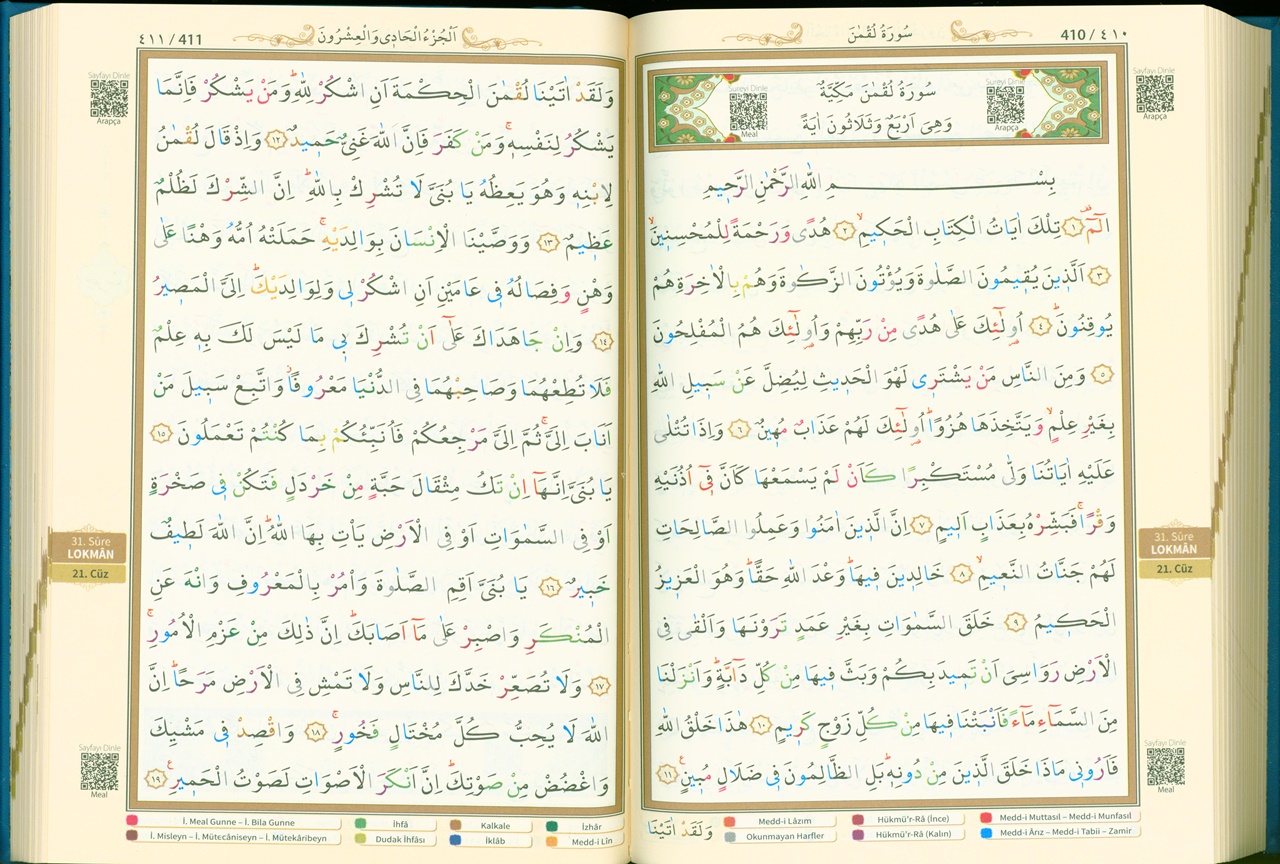 سُورَةُ لُقْمٰنَ
410 / ٤١٠
Sureyi Dinle
Meal
Sureyi Dinle
Arapça
سُورَةُ لُقْمٰنَ مَكِّيَّةٌ
وَهِىَ اَرْبَعٌ وَثَلَاثُونَ اٰيَةً
بِسْمِ اللّٰهِ الرَّحْمٰنِ الرَّحٖيمِ
الٓمٓۚ ﴿١﴾ تِلْكَ اٰيَاتُ الْكِتَابِ الْحَكٖيمِۙ ﴿٢﴾ هُدًى وَرَحْمَةً لِلْمُحْسِنٖينَۙ
﴿٣﴾ اَلَّذٖينَ يُقٖيمُونَ الصَّلٰوةَ وَيُؤْتُونَ الزَّكٰوةَ وَهُمْ بِالْاٰخِرَةِ هُمْ
يُوقِنُونَؕ ﴿٤﴾ اُو۬لٰٓئِكَ عَلٰى هُدًى مِنْ رَبِّهِمْ وَاُو۬لٰٓئِكَ هُمُ الْمُفْلِحُونَ
﴿٥﴾ وَمِنَ النَّاسِ مَنْ يَشْتَرٖى لَهْوَ الْحَدٖيثِ لِيُضِلَّ عَنْ سَبٖيلِ اللّٰهِ
بِغَيْرِ عِلْمٍۙ وَيَتَّخِذَهَا هُزُوًاؕ اُو۬لٰٓئِكَ لَهُمْ عَذَابٌ مُهٖينٌ ﴿٦﴾ وَاِذَا تُتْلٰى
عَلَيْهِ اٰيَاتُنَا وَلّٰى مُسْتَكْبِرًا كَاَنْ لَمْ يَسْمَعْهَا كَاَنَّ فٖٓى اُذُنَيْهِ
وَقْرًاۚ فَبَشِّرْهُ بِعَذَابٍ اَلٖيمٍ ﴿٧﴾ اِنَّ الَّذٖينَ اٰمَنُوا وَعَمِلُوا الصَّالِحَاتِ
لَهُمْ جَنَّاتُ النَّعٖيمِۙ ﴿٨﴾ خَالِدٖينَ فٖيهَاؕ وَعْدَ اللّٰهِ حَقًّاؕ وَهُوَ الْعَزٖيزُ
الْحَكٖيمُ ﴿٩﴾ خَلَقَ السَّمٰوَاتِ بِغَيْرِ عَمَدٍ تَرَوْنَهَا وَاَلْقٰى فِى
الْاَرْضِ رَوَاسِىَ اَنْ تَمٖيدَ بِكُمْ وَبَثَّ فٖيهَا مِنْ كُلِّ دَٓابَّةٍؕ وَاَنْزَلْنَا
مِنَ السَّمَٓاءِ مَٓاءً فَاَنْبَتْنَا فٖيهَا مِنْ كُلِّ زَوْجٍ كَرٖيمٍ ﴿١٠﴾ هٰذَا خَلْقُ اللّٰهِ
فَاَرُونٖى مَاذَا خَلَقَ الَّذٖينَ مِنْ دُونِهٖؕ بَلِ الظَّالِمُونَ فٖى ضَلَالٍ مُبٖينٍۚ ﴿١١﴾
وَلَقَدْ اٰتَيْنَا
Medd-i Lâzım
Hükmü'r-Râ (İnce)
Medd-i Muttasıl – Medd-i Munfasıl
Okunmayan Harfler
Hükmü'r-Râ (Kalın)
Medd-i Ânz – Medd-i Tabii – Zamir
Sayfayı Dinle
Arapça
31. Sûre
LOKMÂN
21. Cüz
Sayfayı Dinle
Meal
٤١١ / 411
اَلْجُزْءُ الْحَادٖى وَالْعِشْرُونَ
وَلَقَدْ اٰتَيْنَا لُقْمٰنَ الْحِكْمَةَ اَنِ اشْكُرْ لِلّٰهِؕ وَمَنْ يَشْكُرْ فَاِنَّمَا
يَشْكُرُ لِنَفْسِهٖۚ وَمَنْ كَفَرَ فَاِنَّ اللّٰهَ غَنِىٌّ حَمٖيدٌ ﴿١٢﴾ وَاِذْ قَالَ لُقْمٰنُ
لِابْنِهٖ وَهُوَ يَعِظُهُ يَا بُنَىَّ لَا تُشْرِكْ بِاللّٰهِؕ اِنَّ الشِّرْكَ لَظُلْمٌ
عَظٖيمٌ ﴿١٣﴾ وَوَصَّيْنَا الْاِنْسَانَ بِوَالِدَيْهِۚ حَمَلَتْهُ اُمُّهُ وَهْنًا عَلٰى
وَهْنٍ وَفِصَالُهُ فٖى عَامَيْنِ اَنِ اشْكُرْ لٖى وَلِوَالِدَيْكَؕ اِلَىَّ الْمَصٖيرُ
﴿١٤﴾ وَاِنْ جَاهَدَاكَ عَلٰٓى اَنْ تُشْرِكَ بٖى مَا لَيْسَ لَكَ بِهٖ عِلْمٌ
فَلَا تُطِعْهُمَا وَصَاحِبْهُمَا فِى الدُّنْيَا مَعْرُوفًاؗ وَاتَّبِعْ سَبٖيلَ مَنْ
اَنَابَ اِلَىَّۚ ثُمَّ اِلَىَّ مَرْجِعُكُمْ فَاُنَبِّئُكُمْ بِمَا كُنْتُمْ تَعْمَلُونَ ﴿١٥﴾
يَا بُنَىَّ اِنَّهَٓا اِنْ تَكُ مِثْقَالَ حَبَّةٍ مِنْ خَرْدَلٍ فَتَكُنْ فٖى صَخْرَةٍ
اَوْ فِى السَّمٰوَاتِ اَوْ فِى الْاَرْضِ يَأْتِ بِهَا اللّٰهُؕ اِنَّ اللّٰهَ لَطٖيفٌ
خَبٖيرٌ ﴿١٦﴾ يَا بُنَىَّ اَقِمِ الصَّلٰوةَ وَأْمُرْ بِالْمَعْرُوفِ وَانْهَ عَنِ
الْمُنْكَرِ وَاصْبِرْ عَلٰى مَٓا اَصَابَكَؕ اِنَّ ذٰلِكَ مِنْ عَزْمِ الْاُمُورِۚ
﴿١٧﴾ وَلَا تُصَعِّرْ خَدَّكَ لِلنَّاسِ وَلَا تَمْشِ فِى الْاَرْضِ مَرَحًاؕ اِنَّ
اللّٰهَ لَا يُحِبُّ كُلَّ مُخْتَالٍ فَخُورٍۚ ﴿١٨﴾ وَاقْصِدْ فٖى مَشْيِكَ
وَاغْضُضْ مِنْ صَوْتِكَؕ اِنَّ اَنْكَرَ الْاَصْوَاتِ لَصَوْتُ الْحَمٖيرِۚ ﴿١٩﴾
İ. Meal Gunne – İ. Bila Gunne
İhfâ
Kalkale
İzhâr
İ. Misleyn – İ. Mütecâniseyn – İ. Mütekâribeyn
Dudak İhfâsı
İklâb
Medd-i Lîn
Sayfayı Dinle
Arapça
31. Sûre
LOKMÂN
21. Cüz
Sayfayı Dinle
Meal